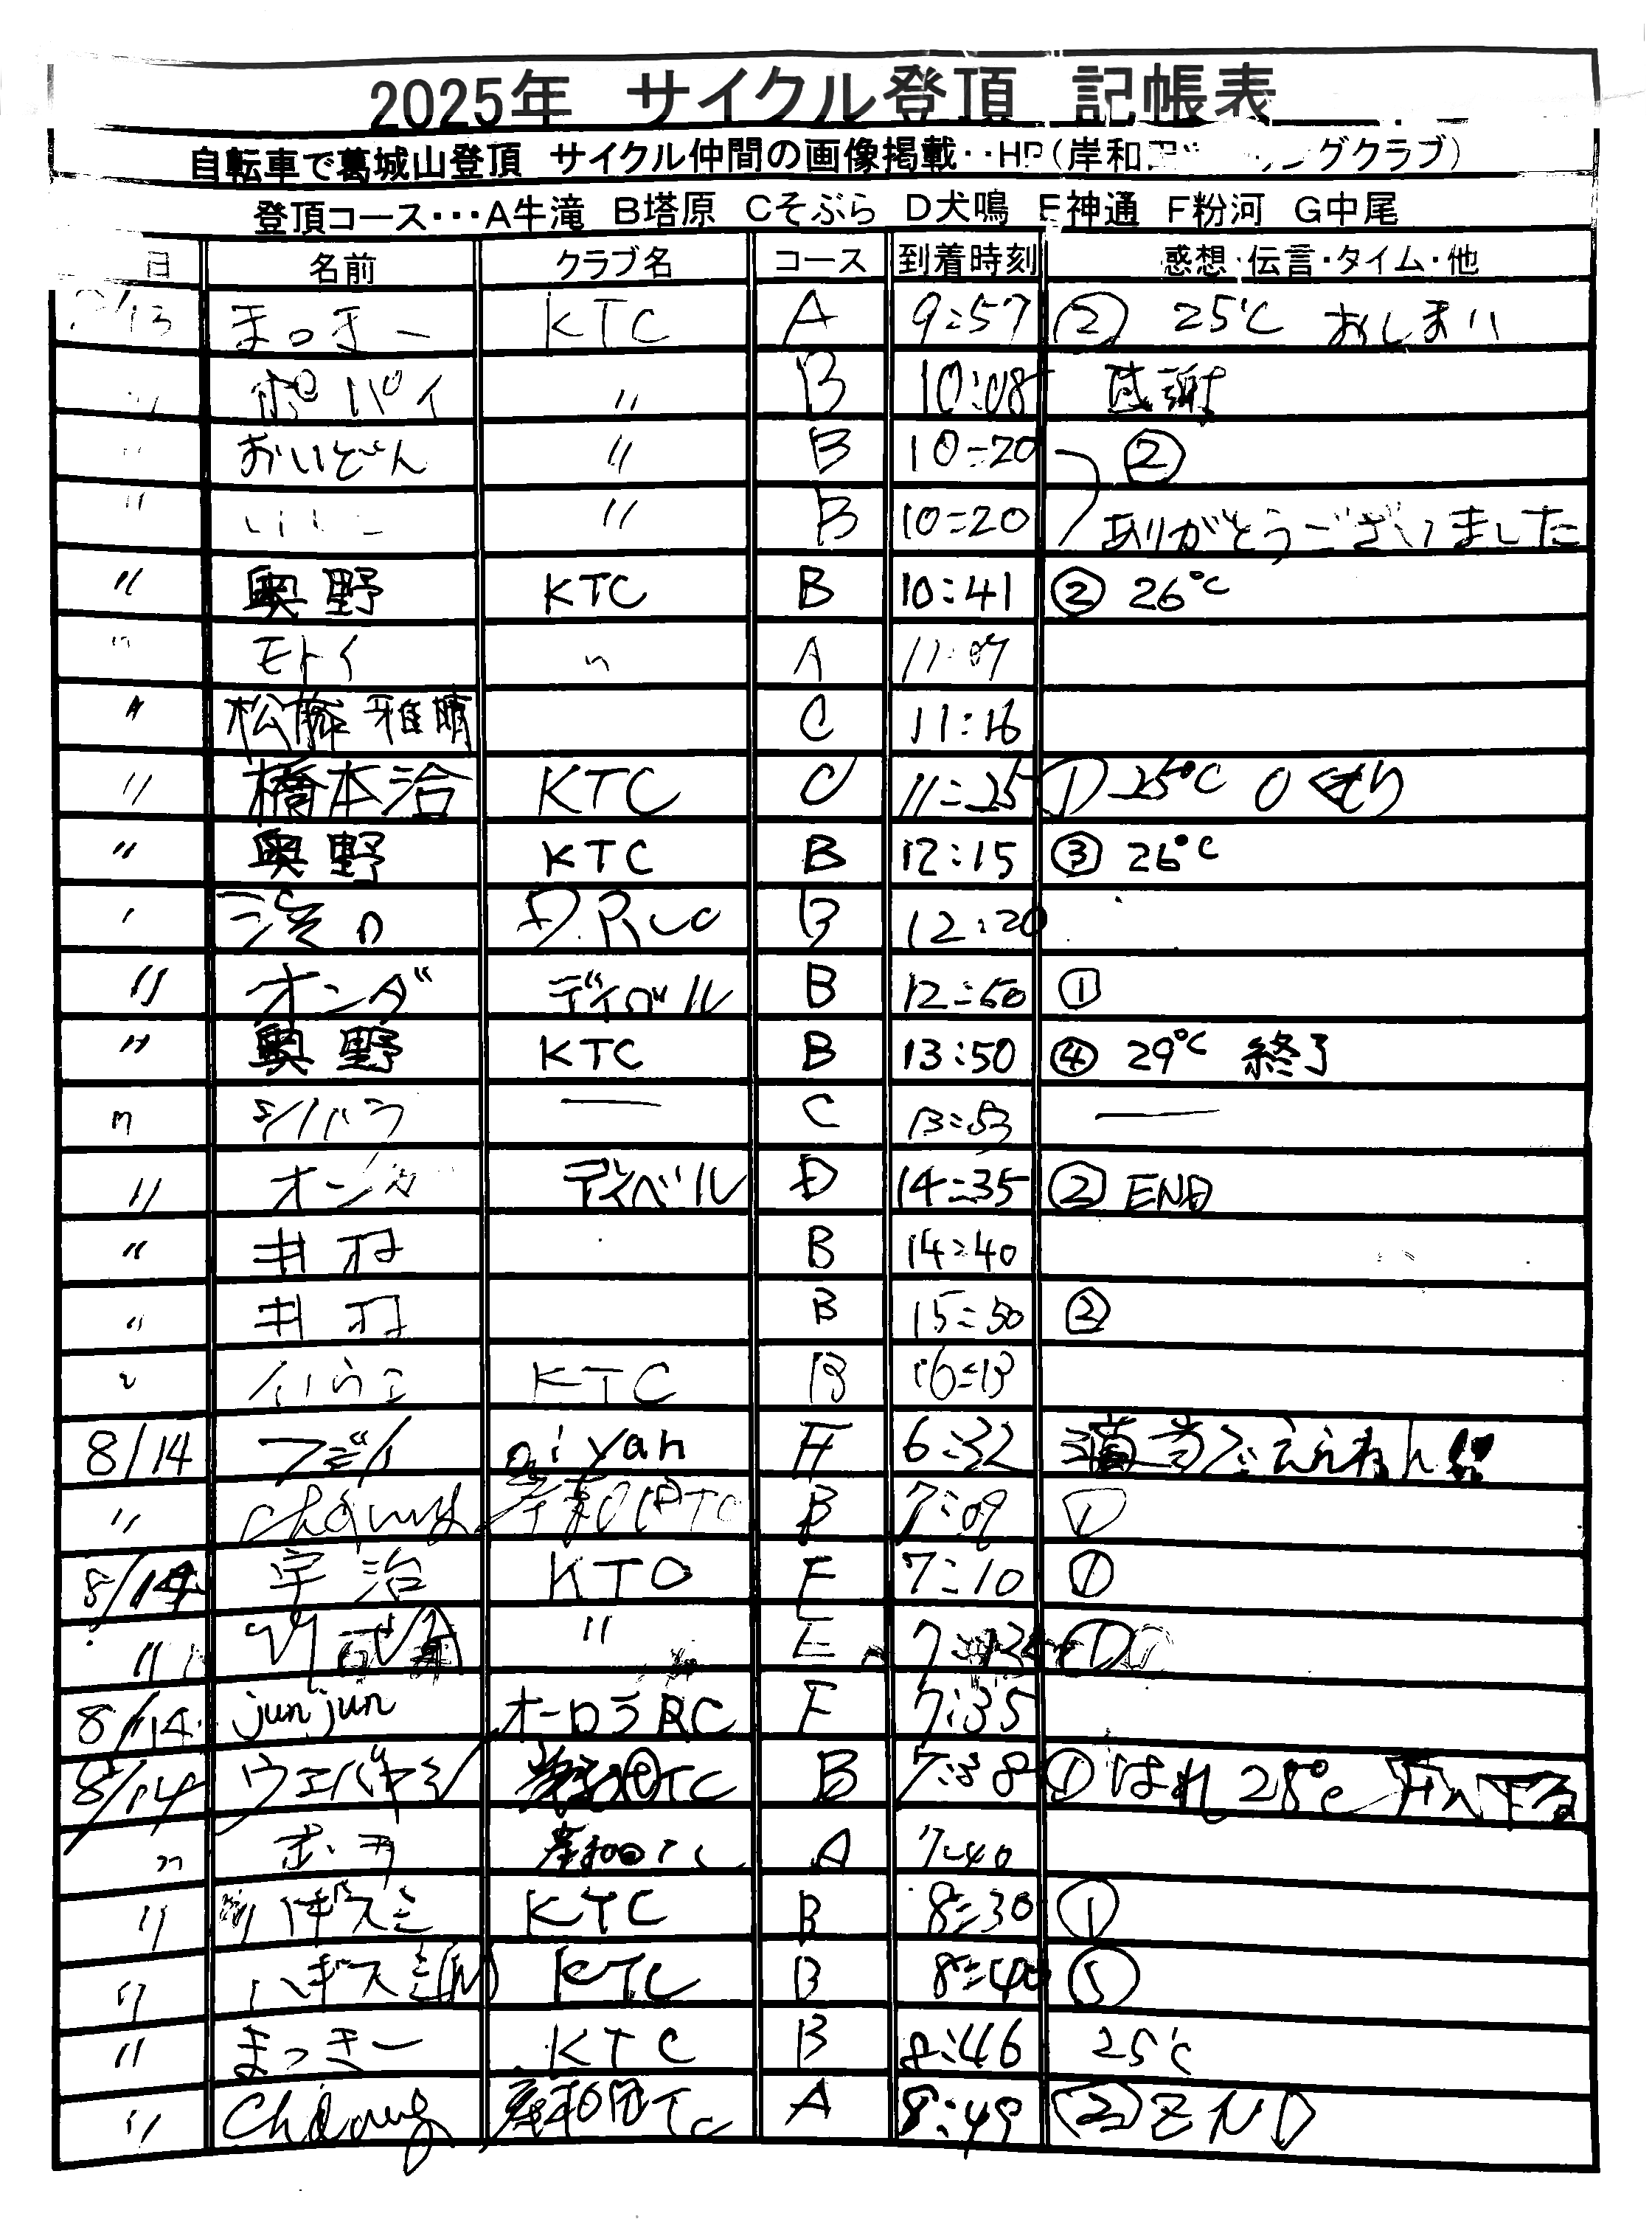 2025年 サイクル登頂 記帳表
自転車で葛城山登頂 サイクル仲間の画像掲載‥HP(岸和 ングクラブ)
登頂コース･･･A牛滝 B塔原 Cそぶら D犬鳴 E神通 F粉河 G中尾
日 名前 クラブ名 コース 到着時刻 感想・伝言・タイム・他
/13 まっきー KTC A 9:57 ② 25℃ おしまい
ポパイ 〃 B 10:08 感謝
〃 おいどん 〃 B 10:20 ②
〃 〃 B 10:20 ありがとうございました
〃 奥野 KTC B 10:41 ② 26℃
〃 モトイ 〃 A 11:07
〃 松藤 雅晴 C 11:16
〃 橋本治 KTC C 11:25 ① 25℃ くもり
〃 奥野 KTC B 12:15 ③ 26℃
B 12:20
〃 オンダ ディベル B 12:50 ①
〃 奥野 KTC B 13:50 ④ 29℃ 終了
〃 シバラ ― C 13:53 ―
〃 オンダ ディベル D 14:35 ② END
〃 井村 B 14:40
〃 井村 B 15:50 ②
〃 KTC B 16:13
8/14 フデイ yan 6:32 適当でええねん!!
〃 岸和田TC B 7:09 ①
8/14 宇治 KTC E 7:10 ①
〃 〃 E ①
8/14 junjun オーロラRC F 7:35
8/14 ウエバヤシ 岸和田TC B 7:38 ① はれ 28℃
〃 A 7:40
〃 ハギスミ KTC B 8:30 ①
〃 ハギスミ KTC B 8:40 ⑤
〃 まっきー KTC B 8:46 25℃
〃 岸和田TC A 8:49 ② END